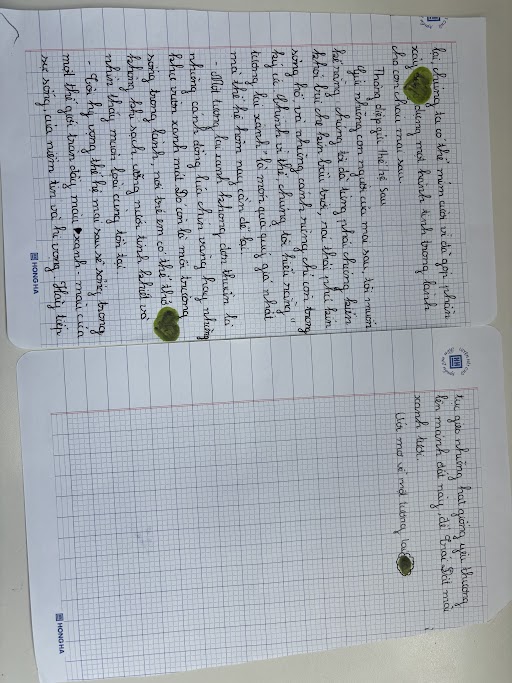 lại, chúng ta có thể mỉm cười vì đã góp phần
xây dựng một hành tinh trong lành
cho con cháu mai sau.
Thông điệp gửi thế hệ sau
Gửi những con người của mai sau, tôi muốn
kể rằng chúng tôi đã từng phải chứng kiến
khói bụi che kín bầu trời, rác thải phủ kín
sông hồ, và những cánh rừng chỉ còn trong
ký ức. Chính vì thế, chúng tôi hiểu rằng "
tương lai xanh" là món quà quý giá nhất
mà thế hệ hôm nay cần để lại.
- Một tương lai xanh không đơn thuần là
những cánh đồng lúa chín vàng hay những
khu vườn xanh mát. Đó còn là môi trường
sống trong lành, nơi trẻ em có thể thở
không khí sạch, uống nước tinh khiết và
nhìn thấy muôn loài cùng tồn tại.
- Tôi hy vọng thế hệ mai sau sẽ sống trong
một thế giới tràn đầy màu xanh: màu của
sự sống, của niềm tin và hi vọng. Hãy tiếp
HONG HA
tục gieo những hạt giống yêu thương
lên mảnh đất này, để Trái Đất mãi
xanh tươi.
Ước mơ về một tương lai
HONG HA